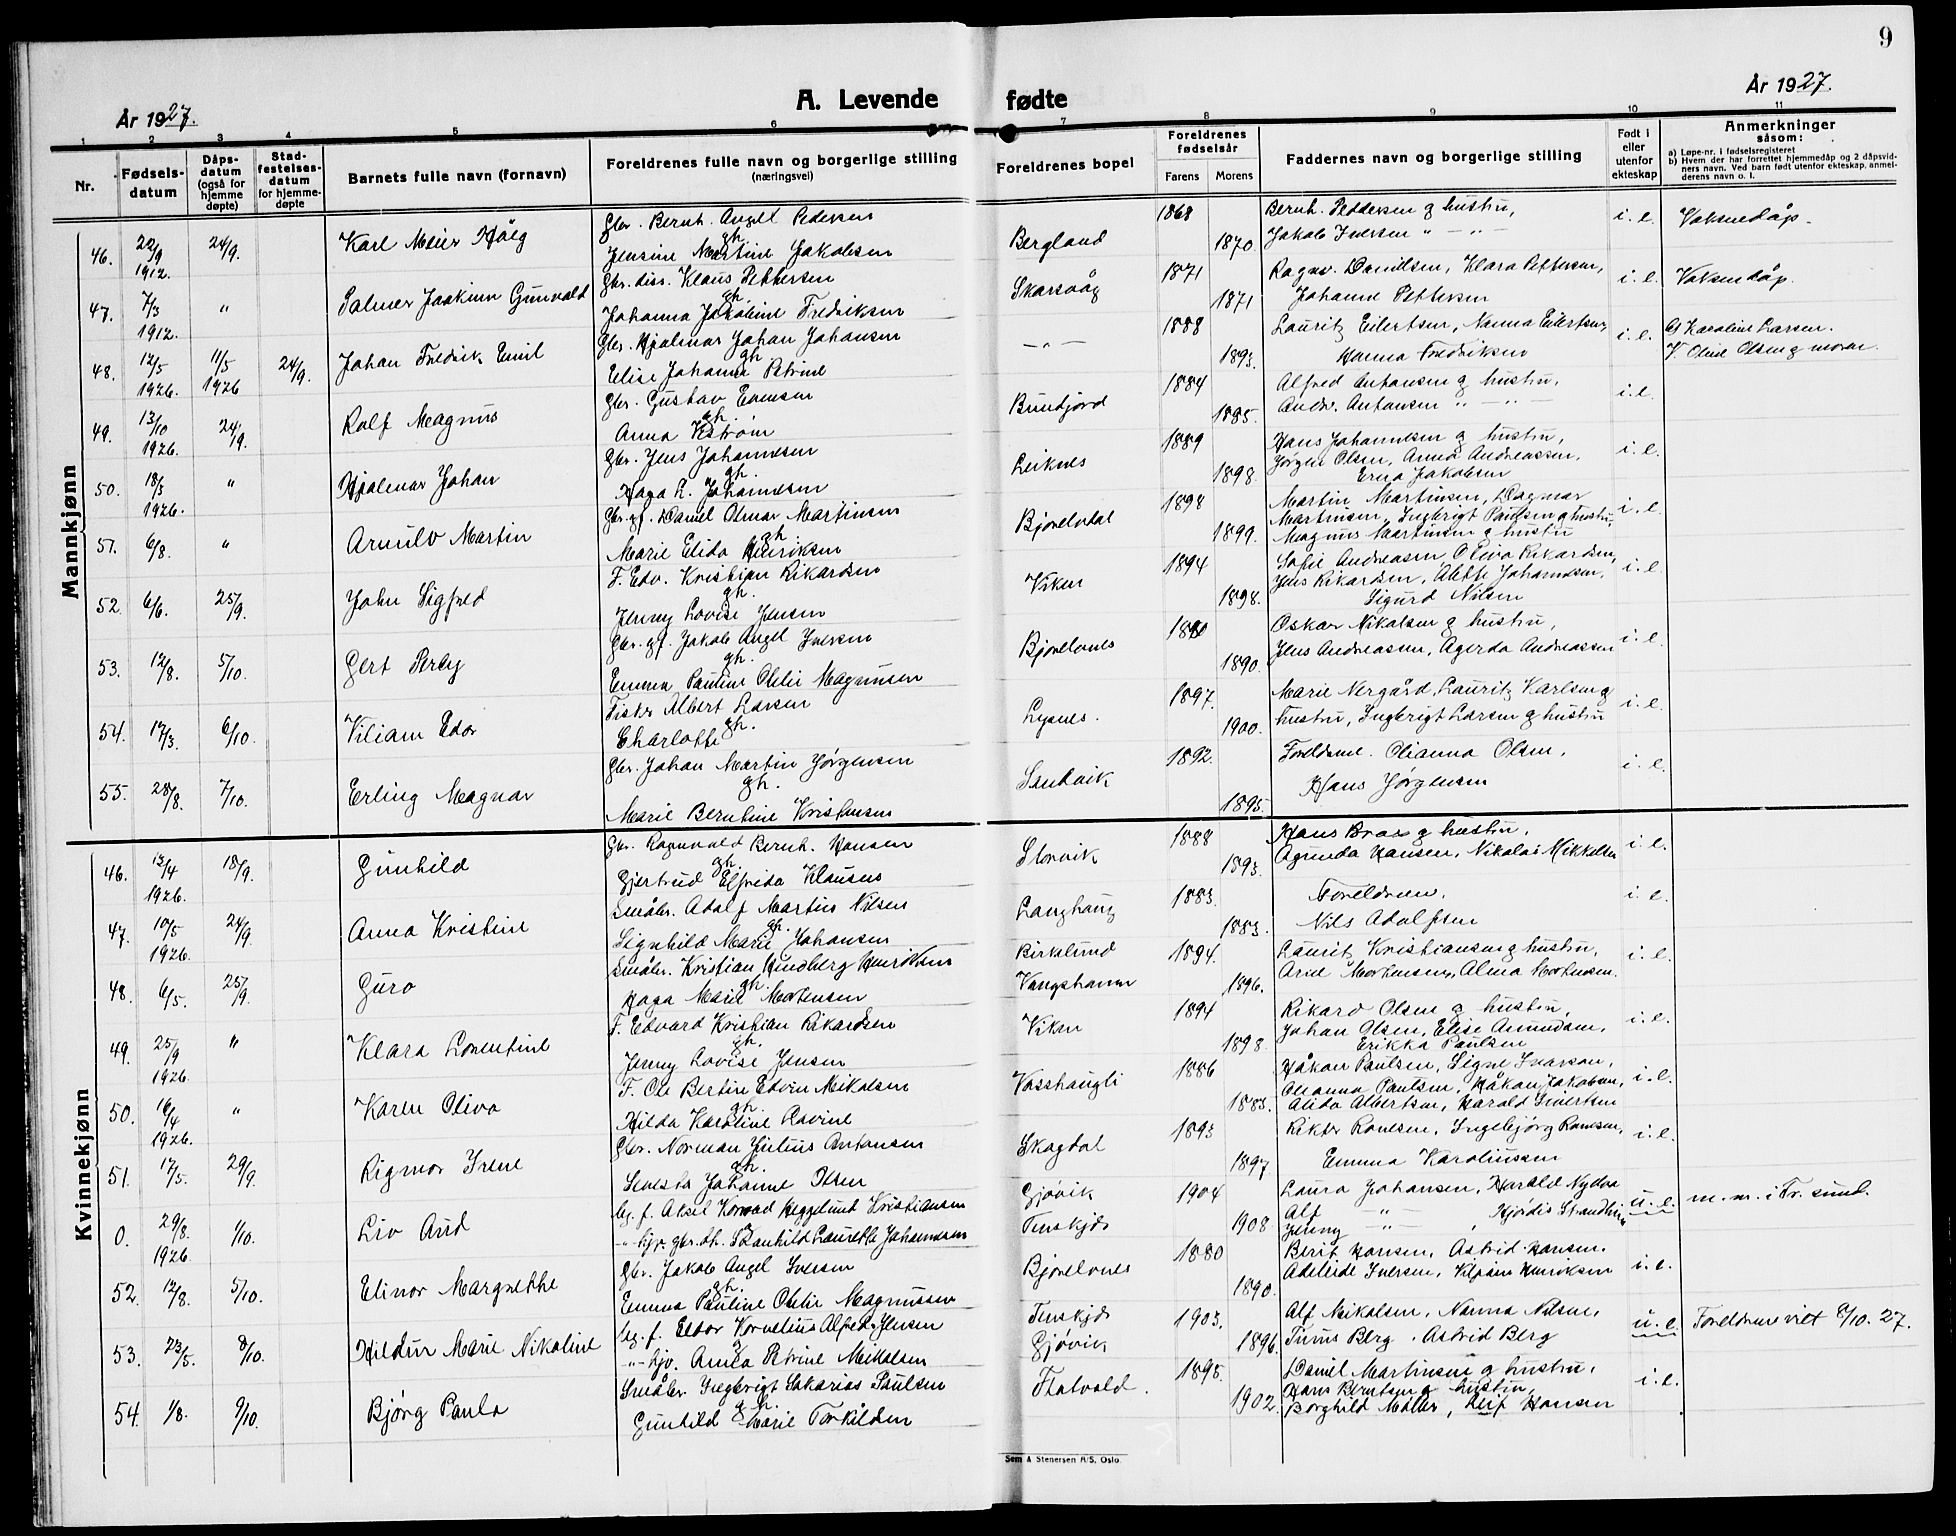 9
År 1927.
A. Levende fødte
År 1927.
1 2 3 4 5 6 7 8 9 10 11
Nr.
Fødsels-datum
Dåps-datum (også for hjemme døpte)
Stad-festelses-datum for hjemme-døpte
Barnets fulle navn (fornavn)
Foreldrenes fulle navn og borgerlige stilling (næringsvei)
Foreldrenes bopel
Foreldrenes fødselsår
Farens
Morens
Faddernes navn og borgerlige stilling
Født i eller utenfor ekteskap
Anmerkninger såsom:
a) Løpe-nr. i fødselsregisteret
b) Hvem der har forrettet hjemmedåp og 2 dåpsvid-ners navn. Ved barn født utenfor ekteskap, anmel-derens navn o. l.
Mannkjønn
46. 20/9 1912. 24/9. Karl Meier Håeg
Gbr. Bernh. Angel Pedersen gh. Jensine Martine Jakobsen
Bergland 1868 1870.
Bernh. Peddersen g hustru, Jakob Iversen " - " - i. e. Voksnedåp.
47. 7/3 1912. " Salmer Joakim Gunvald
Gbr. diss. Klaus Pettersen gh. Johanna Jakobine Fredriksen
Skarsvåg 1871 1871
Ragnv. Danilsen, Klara Pettersen, Johanne Pettersen i. e. Voksendåp.
48. 12/5 1926. 11/5 1926 24/9. Johan Fredrik Emil
Gbr. Hjalmar Johan Johansen gh. Elise Johanna Petrine
- " - 1888 1893.
Lauritz Eilertsen, Nanna Eilertsen, Hanna Fredriksen i. e. Af Karoline Larsen. V. Oline Olsen g moren.
49. 13/10 1926. 24/9. Rolf Magnus
Gbr. Gustav Evensen gh. Anna Vestrøm
Bunfjord 1884 1895.
Alfred Antonsen g hustru, Andr. Antonsen " - " - i. e.
50. 18/3 1926. " Hjalmar Johan
Gbr. Jens Johannesen gh. Haga L. Johannesen
Leiknes 1889 1898.
Hans Johannesen g hustru, Jørgen Olsen, Anna Andreassen, Erna Jakobsen i. e.
51. 6/8. " Arnulv Martin
Gbr. gf. Daniel Osmar Martinsen gh. Marie Elida Henriksen
Bjorelvdal 1898 1899.
Martin Martinsen, Dagmar Martinsen, Ingbrigt Paulsen g hustru, Magnus Martinsen g hustru i. e.
52. 6/6. 25/9. John Sigfred
F. Edv. Kristian Rikardsen gh. Jenny Lovise Jensen
Viken 1894 1898.
Sofie Andreasen, Oliva Rikardsen, Jens Rikardsen, Alette Johannesen, Sigurd Nilsen i. e.
53. 12/8. 5/10. Gert Perby
Gbr. gf. Jakob Angel Iversen gh. Emma Pauline Otelie Magnussen
Bjorelvnes 1880 1890.
Oskar Nikolsen g hustru, Jens Andreassen, Agerda Andreassen i. e.
54. 17/3. 6/10. Viliam Edor
Fisker Albert Larsen gh. Charlotte
Lysnes. 1897. 1900.
Marie Nergård, Lauritz Karlsen g hustru, Ingbrigt Larsen g hustru i. e.
55. 28/8. 7/10. Erling Magnar
Gbr. Johan Martin Jørgensen gh. Marie Berntine Kristensen
Sandvik 1892. 1895.
Foreldrene. Olianna Olsen, Hans Jørgensen i. e.
Kvinnekjønn
46. 13/4 1926. 18/9. Gunhild
Gbr. Ragnvald Bernh. Hansen gh. Gjertrud Elfrida Klausens
Storvik 1888 1893.
Hans Braes g hustru, Agunda Hansen, Nikolai Mikkelsen i. e.
47. 10/5 1926. 24/9. Anna Kristine
Småbr. Adolf Martin Nilsen gh. Signhild Marie Johansen
Langhaug 1883. 1883.
Foreldrene. Nils Adolfsen i. e.
48. 6/5. 25/9. Guro
Småbr. Kristian Lindberg Henriksen gh. Haga Marie Mortensen
Birkelund Vangshamn 1894. 1896.
Lauritz Kristiansen g hustru, Arne Mortensen, Alma Mortensen. i. e.
49. 25/9 1926. " Klara Lorentine
F. Edvard Kristian Rikardsen gh. Jenny Lovise Jensen
Vikan 1894 1898
Rikard Olsen g hustru, Johan Olsen, Elise Amundsen, Erikka Paulsen i. e.
50. 16/4 1926. " Karen Oliva
F. Ole Bertin Edvin Mikalsen gh. Hilda Karoline Lovine
Vasshaugli 1886 1883.
Håkon Paulsen, Signe Ivarson, Olianna Paulsen, Håkon Jakobsen, Alida Albertsen, Harald Sivertsen i. e.
51. 17/5. 29/9. Rigmor Irene
Gbr. Norman Julius Antonsen gh. Senesta Johanne Olsen
Skogdal 1893 1897
Rikter Ronesen, Ingebjørg Ronesen, Emma Karoliussen i. e.
0. 29/8. 1926. 1/10. Liv Aud
Ug. f. Aksel Konrad Heggelund Kristiansen g " hjv. gbr. dt. Ranhild Lauretta Johannesen
Gjøvik Tenskjær 1904 1908
Laura Johansen, Harald Nydva Alf " - , Hjørdis Strandheim Jenny " - u. e. m. nr. i Tr. sund.
52. 12/8. 5/10. Elinor Margrethe
Gbr. Jakob Angel Iversen gh. Emma Pauline Otelie Magnussen
Bjorelvnes 1880 1890.
Berit Hansen, Astrid Hansen. Adeleide Iversen, Henriksen i. e.
53. 23/5. 8/10. Hildur Marie Nikoline
Ug. f. Eldor Kornelius Alfred Jensen g " - hjv. Anna Petrine Mikalsen
Tenskjær Gjøvik 1903. 1896.
Alf Mikalsen, Nanna Nilsen, Tinus Berg, Astrid Berg u. e. Foreldrene viet 8/10. 27.
54. 1/8. 9/10. Bjørg Paula
Småbr. Ingbrigt Sakarias Paulsen gh. Gunhild Marie Torkildsen
Flatvold. 1895. 1902.
Daniel Martinsen g hustru, Hans Berntsen g hustru, Borghild Møller, Leif Hansen i. e.
Sem & Stenersen A/S, Oslo.